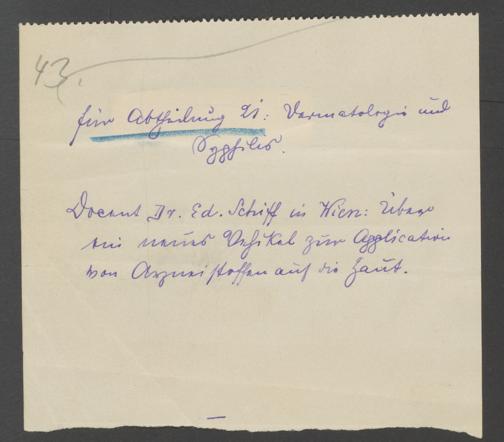 43.
für Abtheilung 21: Dermatologie und
Syphilis.
Docent Dr. Ed. Schiff in Wien: Über
ein neues Vehikel zur Application
von Arzneistoffen auf die Haut.